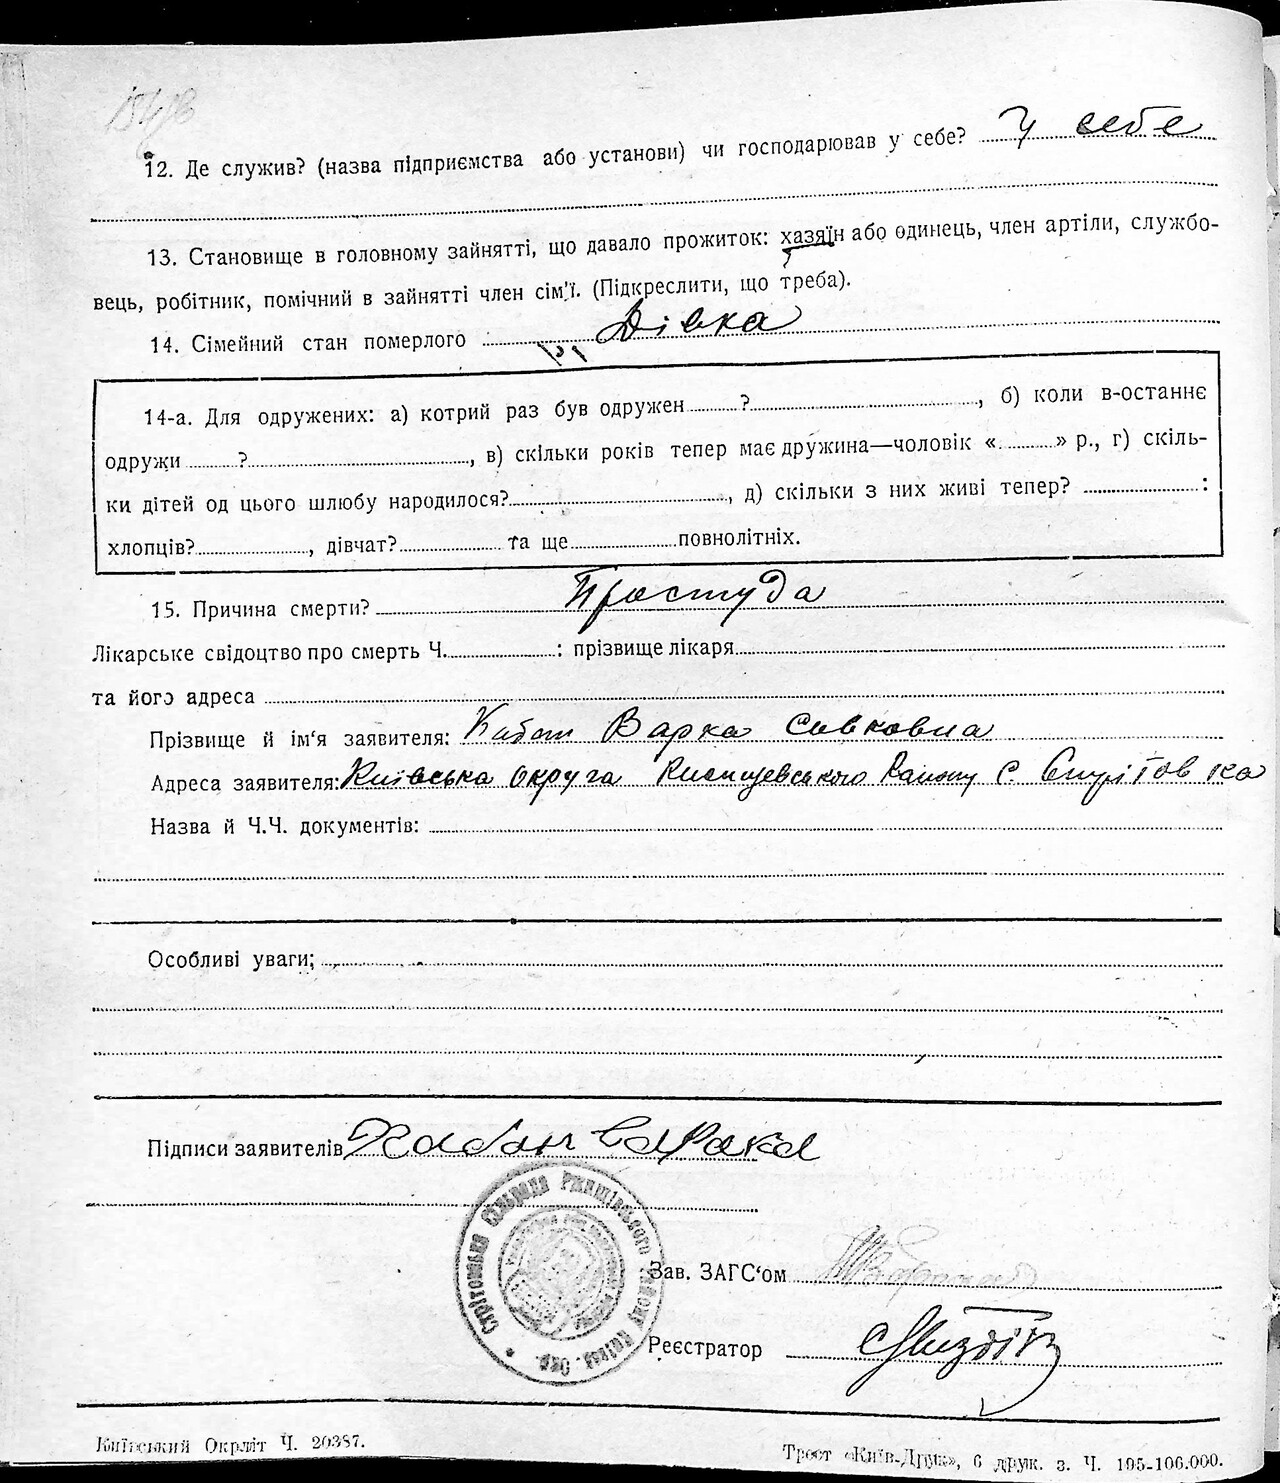 12. Де служив? (назва підприємства або установи) чи господарював у себе? У себе
13. Становище в головному зайнятті, що давало прожиток: хазяїн або одинець, член артіли, службо-
вець, робітник, помічний в зайнятті член сім'ї. (Підкреслити, що треба).
14. Сімейний стан померлого Дівка
14-а. Для одружених: а) котрий раз був одружен ? , б) коли в-останнє
одружи ? , в) скільки років тепер має дружина—чоловік « » р., г) скіль-
ки дітей од цього шлюбу народилося? , д) скільки з них живі тепер? :
хлопців? , дівчат? та ще повнолітніх.
15. Причина смерти? Простуда
Лікарське свідоцтво про смерть Ч. : прізвище лікаря
та його адреса
Прізвище й ім'я заявителя: Варка Савковна
Адреса заявителя: Київська округа Району с. Стрітовка
Назва й Ч.Ч. документів:
Особливі уваги;
Підписи заявителів Варка
Стрітовська Сільрада Ржищівського Району Київськ. Окр.
Зав. ЗАГС'ом
Реєстратор
Київський Окрліт Ч. 20387.
Трест «Київ-Друк», 6 друк. з. Ч. 195-106.000.